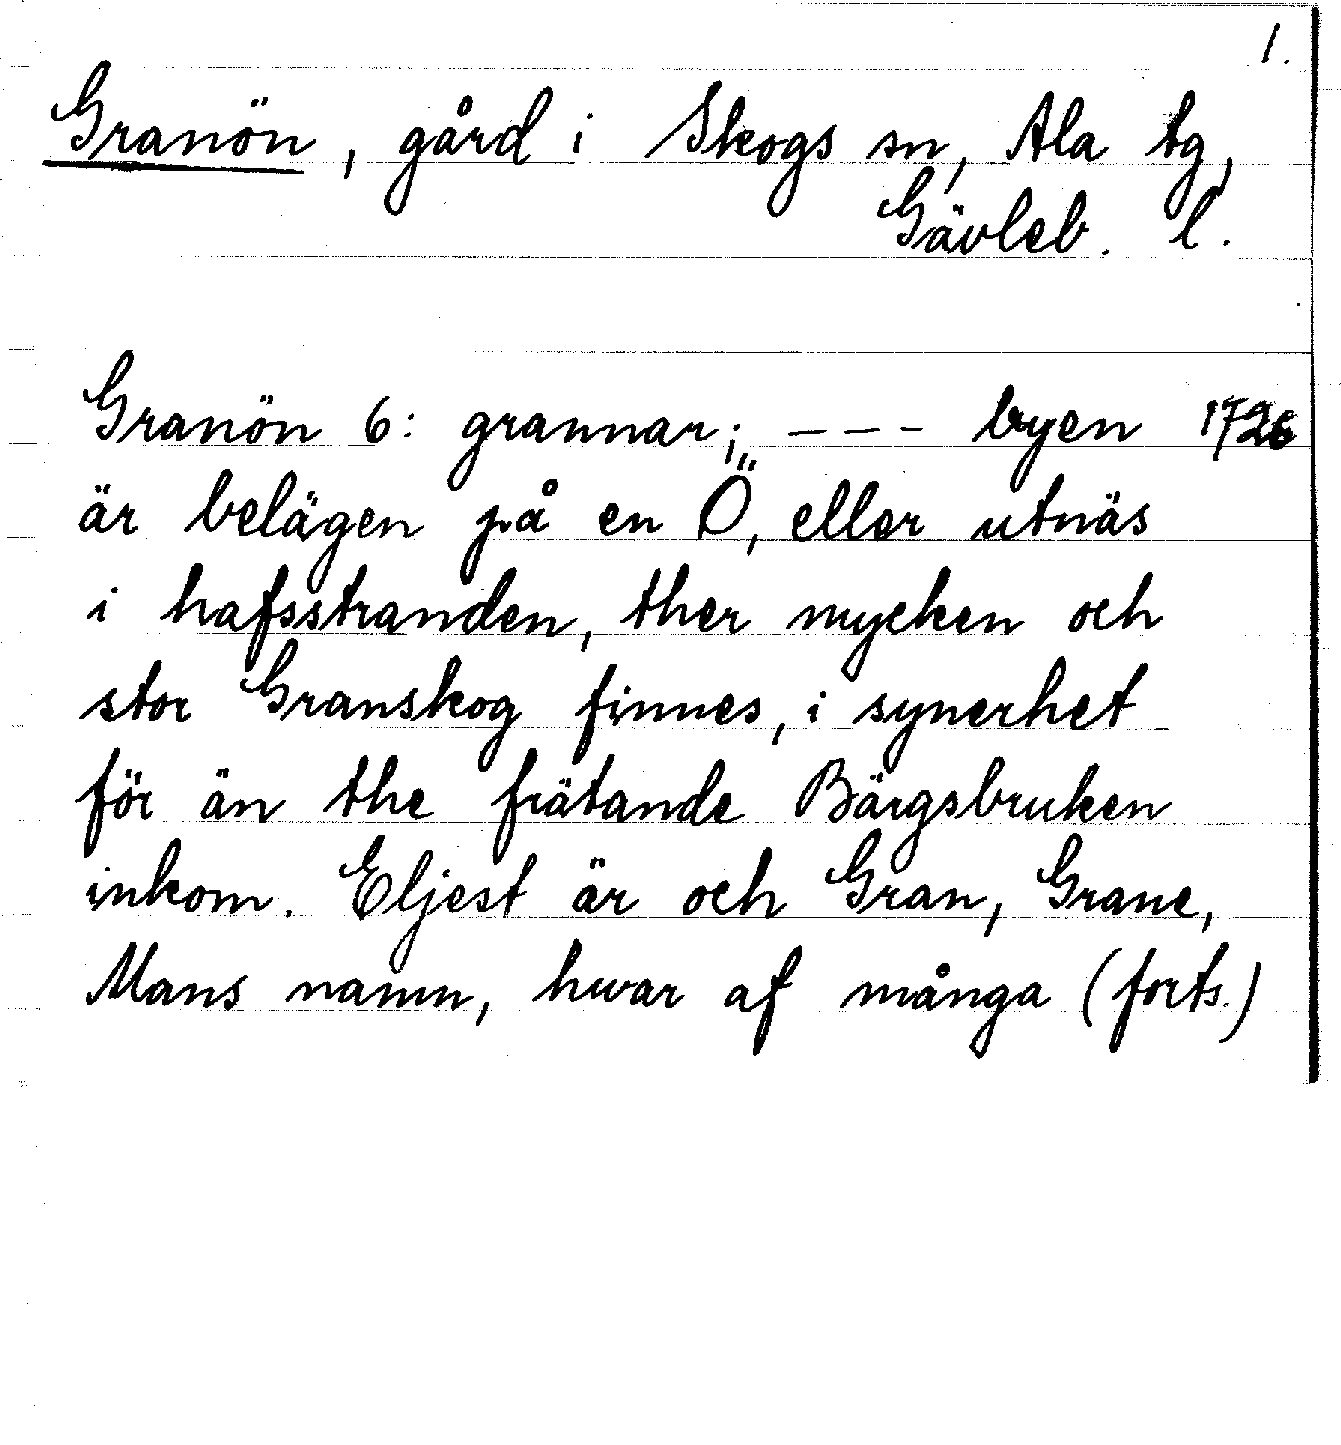 1.
Granön, gård i Skogs sn, Ala tg,
Gävleb. l.
Granön 6: grannar; --- byen 1726
är belägen på en Ö, eller utnäs
i hafsstranden, ther mycken och
stor Granskog finnes, i synerhet
för än the frätande Bärgsbruken
inkom. Eljest är och Gran, Grane,
Mans namn, hwar af många (forts.)